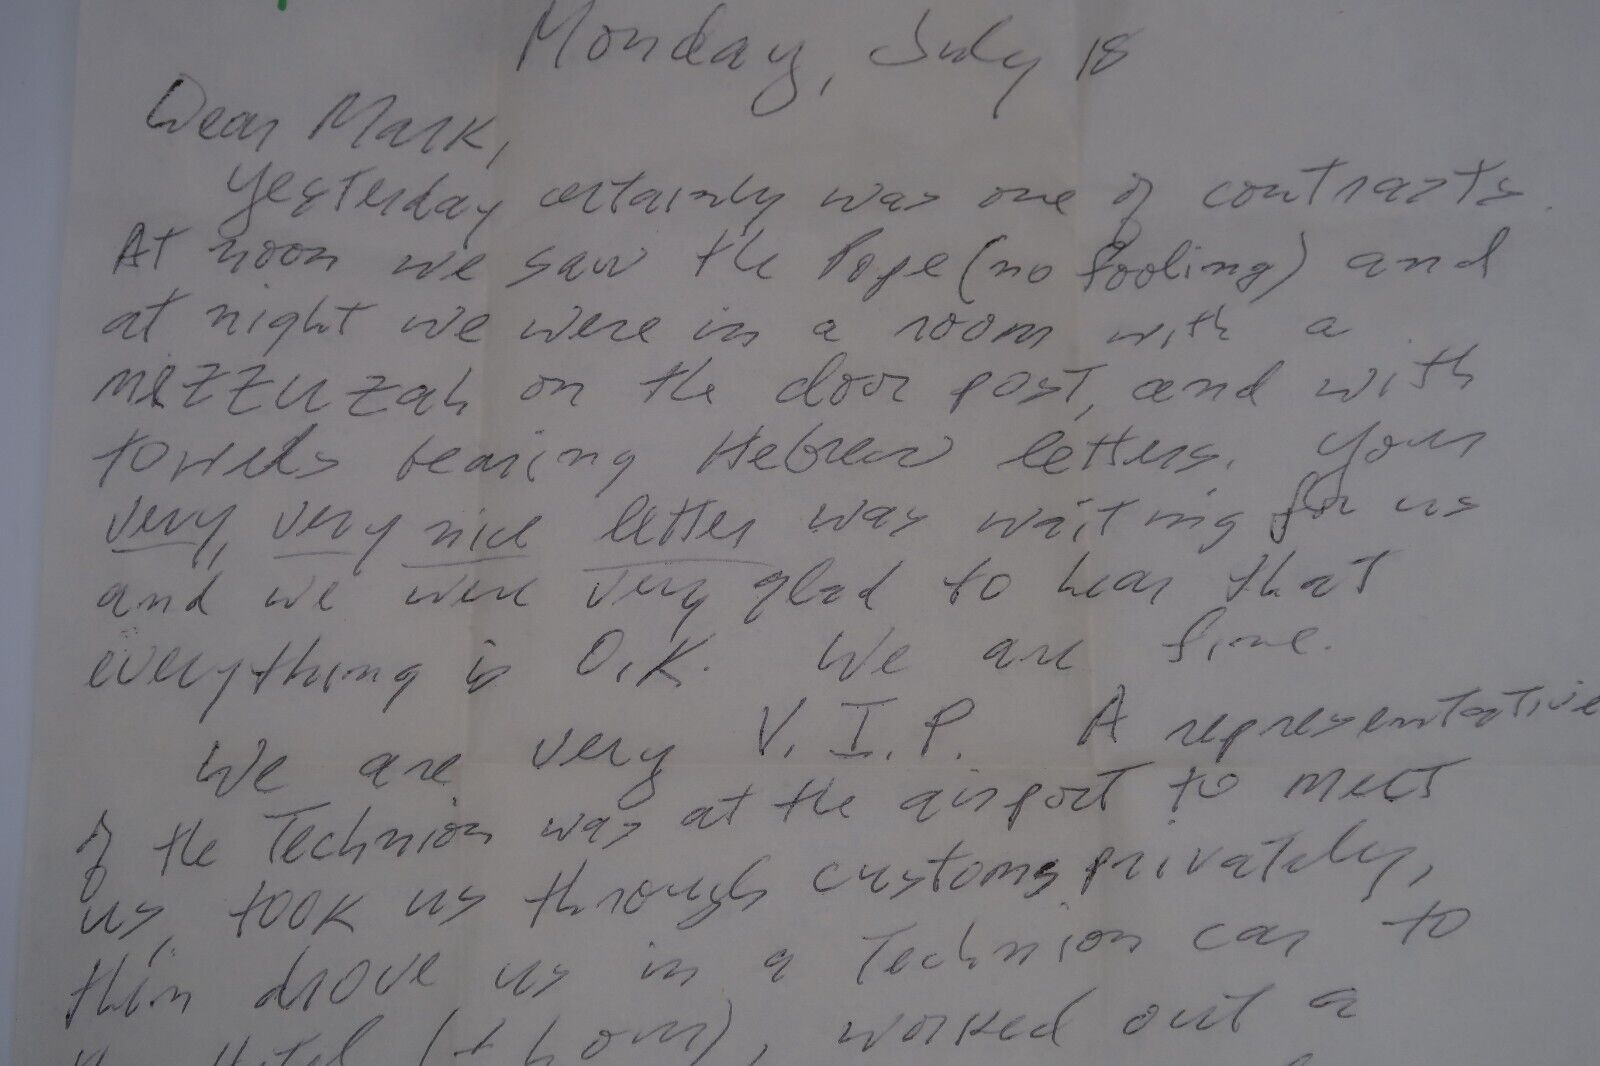 Monday, July 18
Dear Mark,
Yesterday certainly was one of contrasts.
At noon we saw the Pope (no fooling) and
at night we were in a room with a
mezzuzah on the door post, and with
towels bearing Hebrew letters. Your
very, very nice letter was waiting for us
and we were very glad to hear that
everything is O.K. We are fine.
We are very V.I.P. A representative
of the Technion was at the airport to meet
us, took us through customs privately,
then drove us in a Technion car to
Hotel hour), worked out a